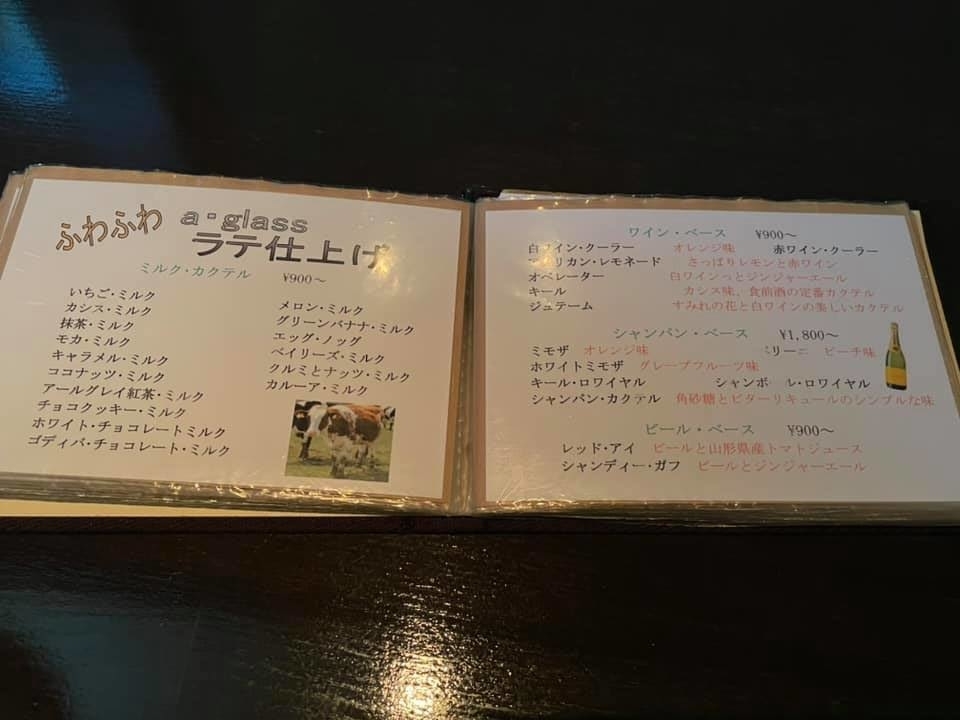 ふわふわ a・glass
ラテ仕上げ
ミルク・カクテル ¥900～
いちご・ミルク
カシス・ミルク
抹茶・ミルク
モカ・ミルク
キャラメル・ミルク
ココナッツ・ミルク
アールグレイ紅茶・ミルク
チョコクッキー・ミルク
ホワイト・チョコレートミルク
ゴディバ・チョコレート・ミルク
メロン・ミルク
グリーンバナナ・ミルク
エッグ・ノッグ
ベイリーズ・ミルク
クルミとナッツ・ミルク
カルーア・ミルク
ワイン・ベース ¥900～
白ワイン・クーラー オレンジ味 赤ワイン・クーラー
アメリカン・レモネード さっぱりレモンと赤ワイン
オペレーター 白ワインっとジンジャーエール
キール カシス味、食前酒の定番カクテル
ジュテーム すみれの花と白ワインの美しいカクテル
シャンパン・ベース ¥1,800～
ミモザ オレンジ味 ピーチ味
ホワイトミモザ グレープフルーツ味
キール・ロワイヤル ル・ロワイヤル
シャンパン・カクテル 角砂糖とビターリキュールのシンプルな味
ビール・ベース ¥900～
レッド・アイ ビールと山形県産トマトジュース
シャンディー・ガフ ビールとジンジャーエール